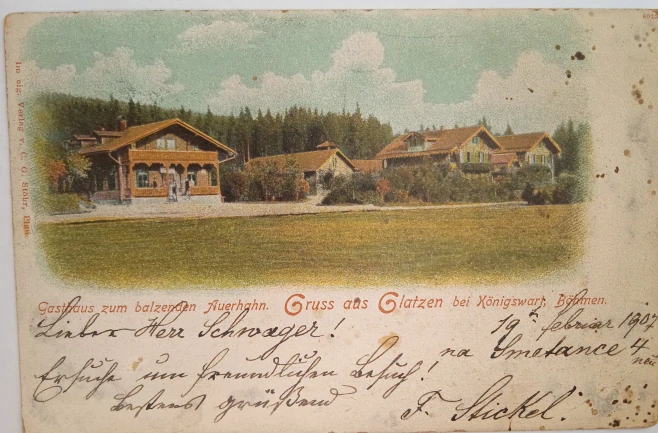 Im eig. Verlag v. C. G. Stöhr, Plan.
Gasthaus zum balzenden Auerhahn. Gruss aus Glatzen bei Königswart, Böhmen.
Lieber Herr Schwager!
19. februar 1907
na Smetance 4
neu
Ersuche um freundlichen Besuch!
Bestens grüßend
F. Stickel.